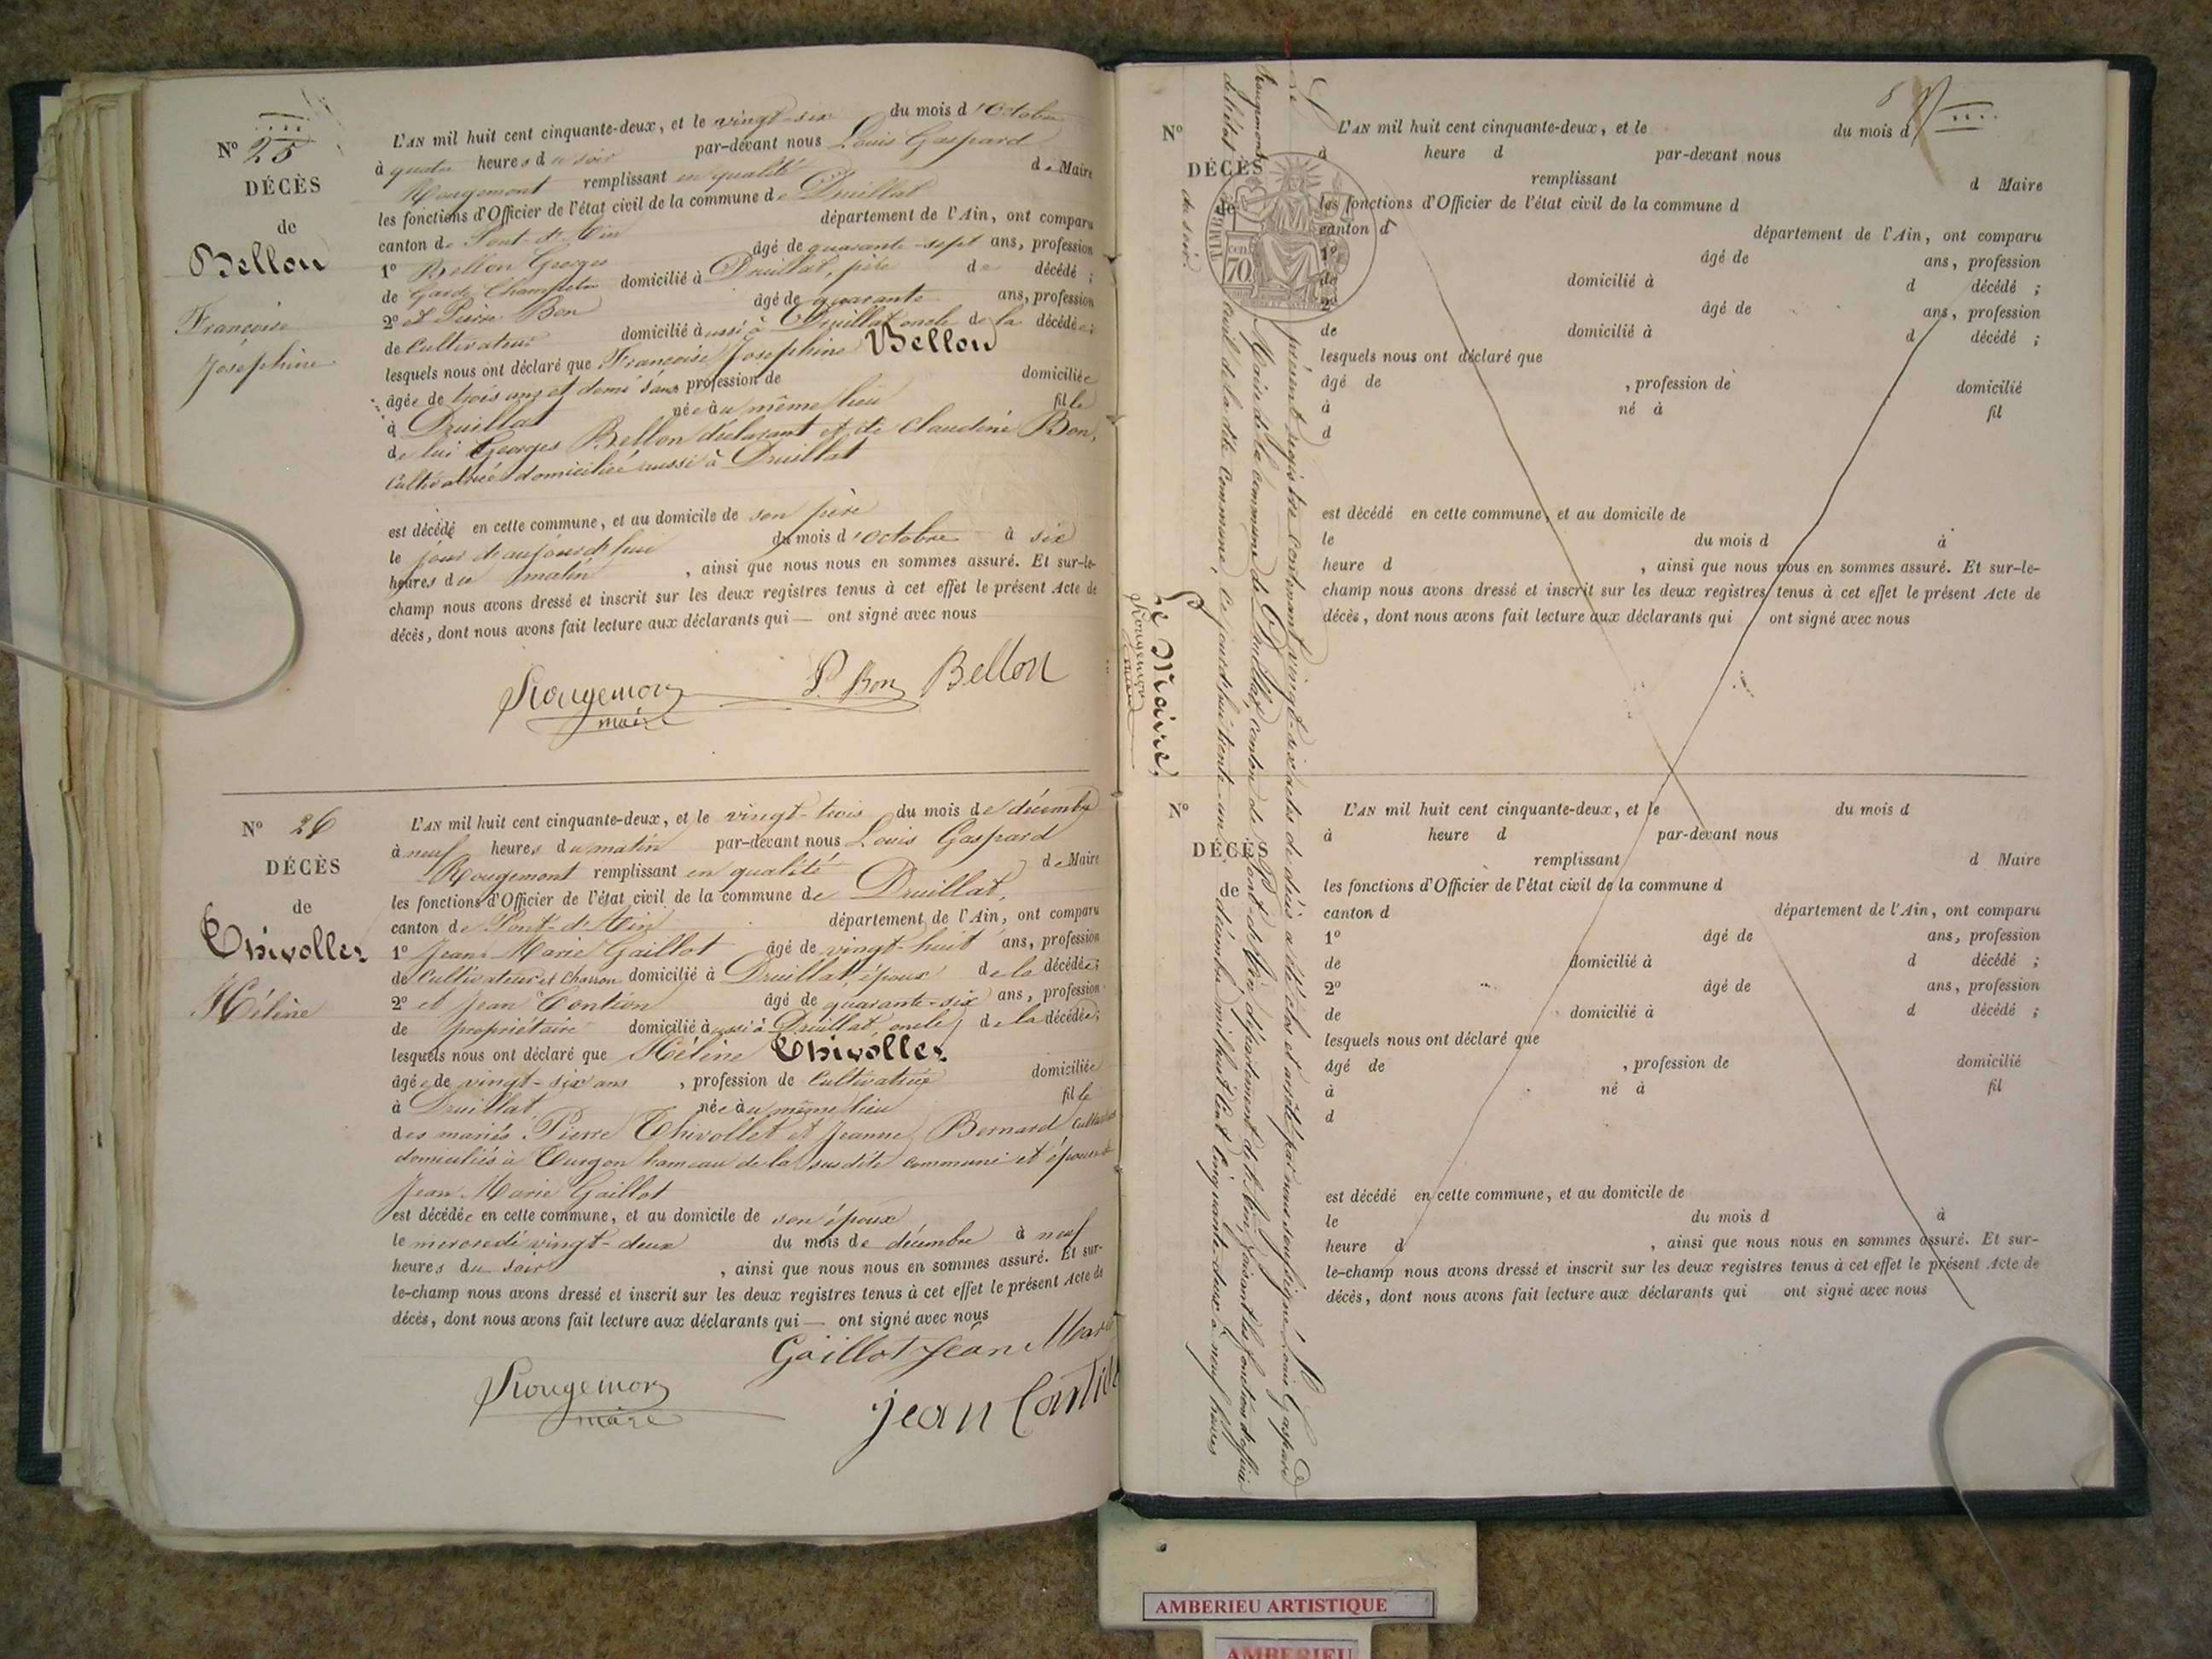 N° 25
DÉCÈS
de
Bellon
Françoise
Joséphine
L'AN mil huit cent cinquante-deux, et le vingt-six du mois d'Octobre
à quatre heures du soir par-devant nous Louis Gaspard
Rougemont remplissant en qualité de Maire
les fonctions d'Officier de l'état civil de la commune de Druillat
canton de Pont-d'Ain département de l'Ain, ont comparu
1° Bellon Georges âgé de quarante-sept ans, profession
de Garde Champêtre domicilié à Druillat, père de décédé ;
2° et Pierre Bon âgé de quarante ans, profession
de Cultivateur domicilié aussi à Druillat oncle de la décédée ;
lesquels nous ont déclaré que Françoise Joséphine Bellon
âgée de trois ans et demi sans profession de domiciliée
à Druillat née au même lieu fille
de lui Georges Bellon déclarant et de Claudine Bon,
Cultivatrice domiciliée aussi à Druillat
est décédé en cette commune, et au domicile de son père
le jour d'aujourd'hui du mois d'Octobre à six
heures du matin , ainsi que nous nous en sommes assuré. Et sur-le-
champ nous avons dressé et inscrit sur les deux registres tenus à cet effet le présent Acte de
décès, dont nous avons fait lecture aux déclarants qui — ont signé avec nous
Rougemont P. Bon Bellon
maire
N° 26
DÉCÈS
de
Chivollet
Hélène
L'AN mil huit cent cinquante-deux, et le vingt-trois du mois de décembre
à neuf heures du matin par-devant nous Louis Gaspard
Rougemont remplissant en qualité de Maire
les fonctions d'Officier de l'état civil de la commune de Druillat,
canton de Pont-d'Ain département de l'Ain, ont comparu
1° Jean Marie Gaillot âgé de vingt-huit ans, profession
de Cultivateur et Charron domicilié à Druillat, époux de la décédée ;
2° et Jean Contion âgé de quarante-six ans, profession
de propriétaire domicilié aussi à Druillat, oncle de la décédée ;
lesquels nous ont déclaré que Hélène Chivollet
âgée de vingt-six ans , profession de Cultivatrice domiciliée
à Druillat née au même lieu fille
des mariés Pierre Chivollet et Jeanne Bernard
domiciliés à Turgon hameau de la susdite commune et épouse de
Jean Marie Gaillot
est décédée en cette commune, et au domicile de son époux
le mercredi vingt-deux du mois de décembre à neuf
heures du soir , ainsi que nous nous en sommes assuré. Et sur-
le-champ nous avons dressé et inscrit sur les deux registres tenus à cet effet le présent Acte de
décès, dont nous avons fait lecture aux déclarants qui — ont signé avec nous
Gaillot Jean Marie
Rougemont
maire
jean
Le présent registre contenant vingt-six actes de décès a été clos et arrêté par nous soussigné Louis Gaspard
Rougemont Maire de la commune de Druillat, canton de Pont-d'Ain, département de l'Ain, faisant les fonctions d'officier
de l'état civil de la dite commune, ce jourd'hui trente-un décembre mil huit cent cinquante-deux à neuf heures
du soir.
Le Maire,
Rougemont
maire
TIMBRE
70
N°
DÉCÈS
de
L'AN mil huit cent cinquante-deux, et le du mois d
à heure d par-devant nous
remplissant d Maire
les fonctions d'Officier de l'état civil de la commune d
canton d département de l'Ain, ont comparu
1° âgé de ans, profession
de domicilié à d décédé ;
2° âgé de ans, profession
de domicilié à d décédé ;
lesquels nous ont déclaré que
âgé de , profession de domicilié
à né à fil
d
est décédé en cette commune, et au domicile de
le du mois d à
heure d , ainsi que nous nous en sommes assuré. Et sur-le-
champ nous avons dressé et inscrit sur les deux registres tenus à cet effet le présent Acte de
décès, dont nous avons fait lecture aux déclarants qui ont signé avec nous
N°
DÉCÈS
de
L'AN mil huit cent cinquante-deux, et le du mois d
à heure d par-devant nous
remplissant d Maire
les fonctions d'Officier de l'état civil de la commune d
canton d département de l'Ain, ont comparu
1° âgé de ans, profession
de domicilié à d décédé ;
2° âgé de ans, profession
de domicilié à d décédé ;
lesquels nous ont déclaré que
âgé de , profession de domicilié
à né à fil
d
est décédé en cette commune, et au domicile de
le du mois d à
heure d , ainsi que nous nous en sommes assuré. Et sur-
le-champ nous avons dressé et inscrit sur les deux registres tenus à cet effet le présent Acte de
décès, dont nous avons fait lecture aux déclarants qui ont signé avec nous
AMBERIEU ARTISTIQUE
AMBERIEU